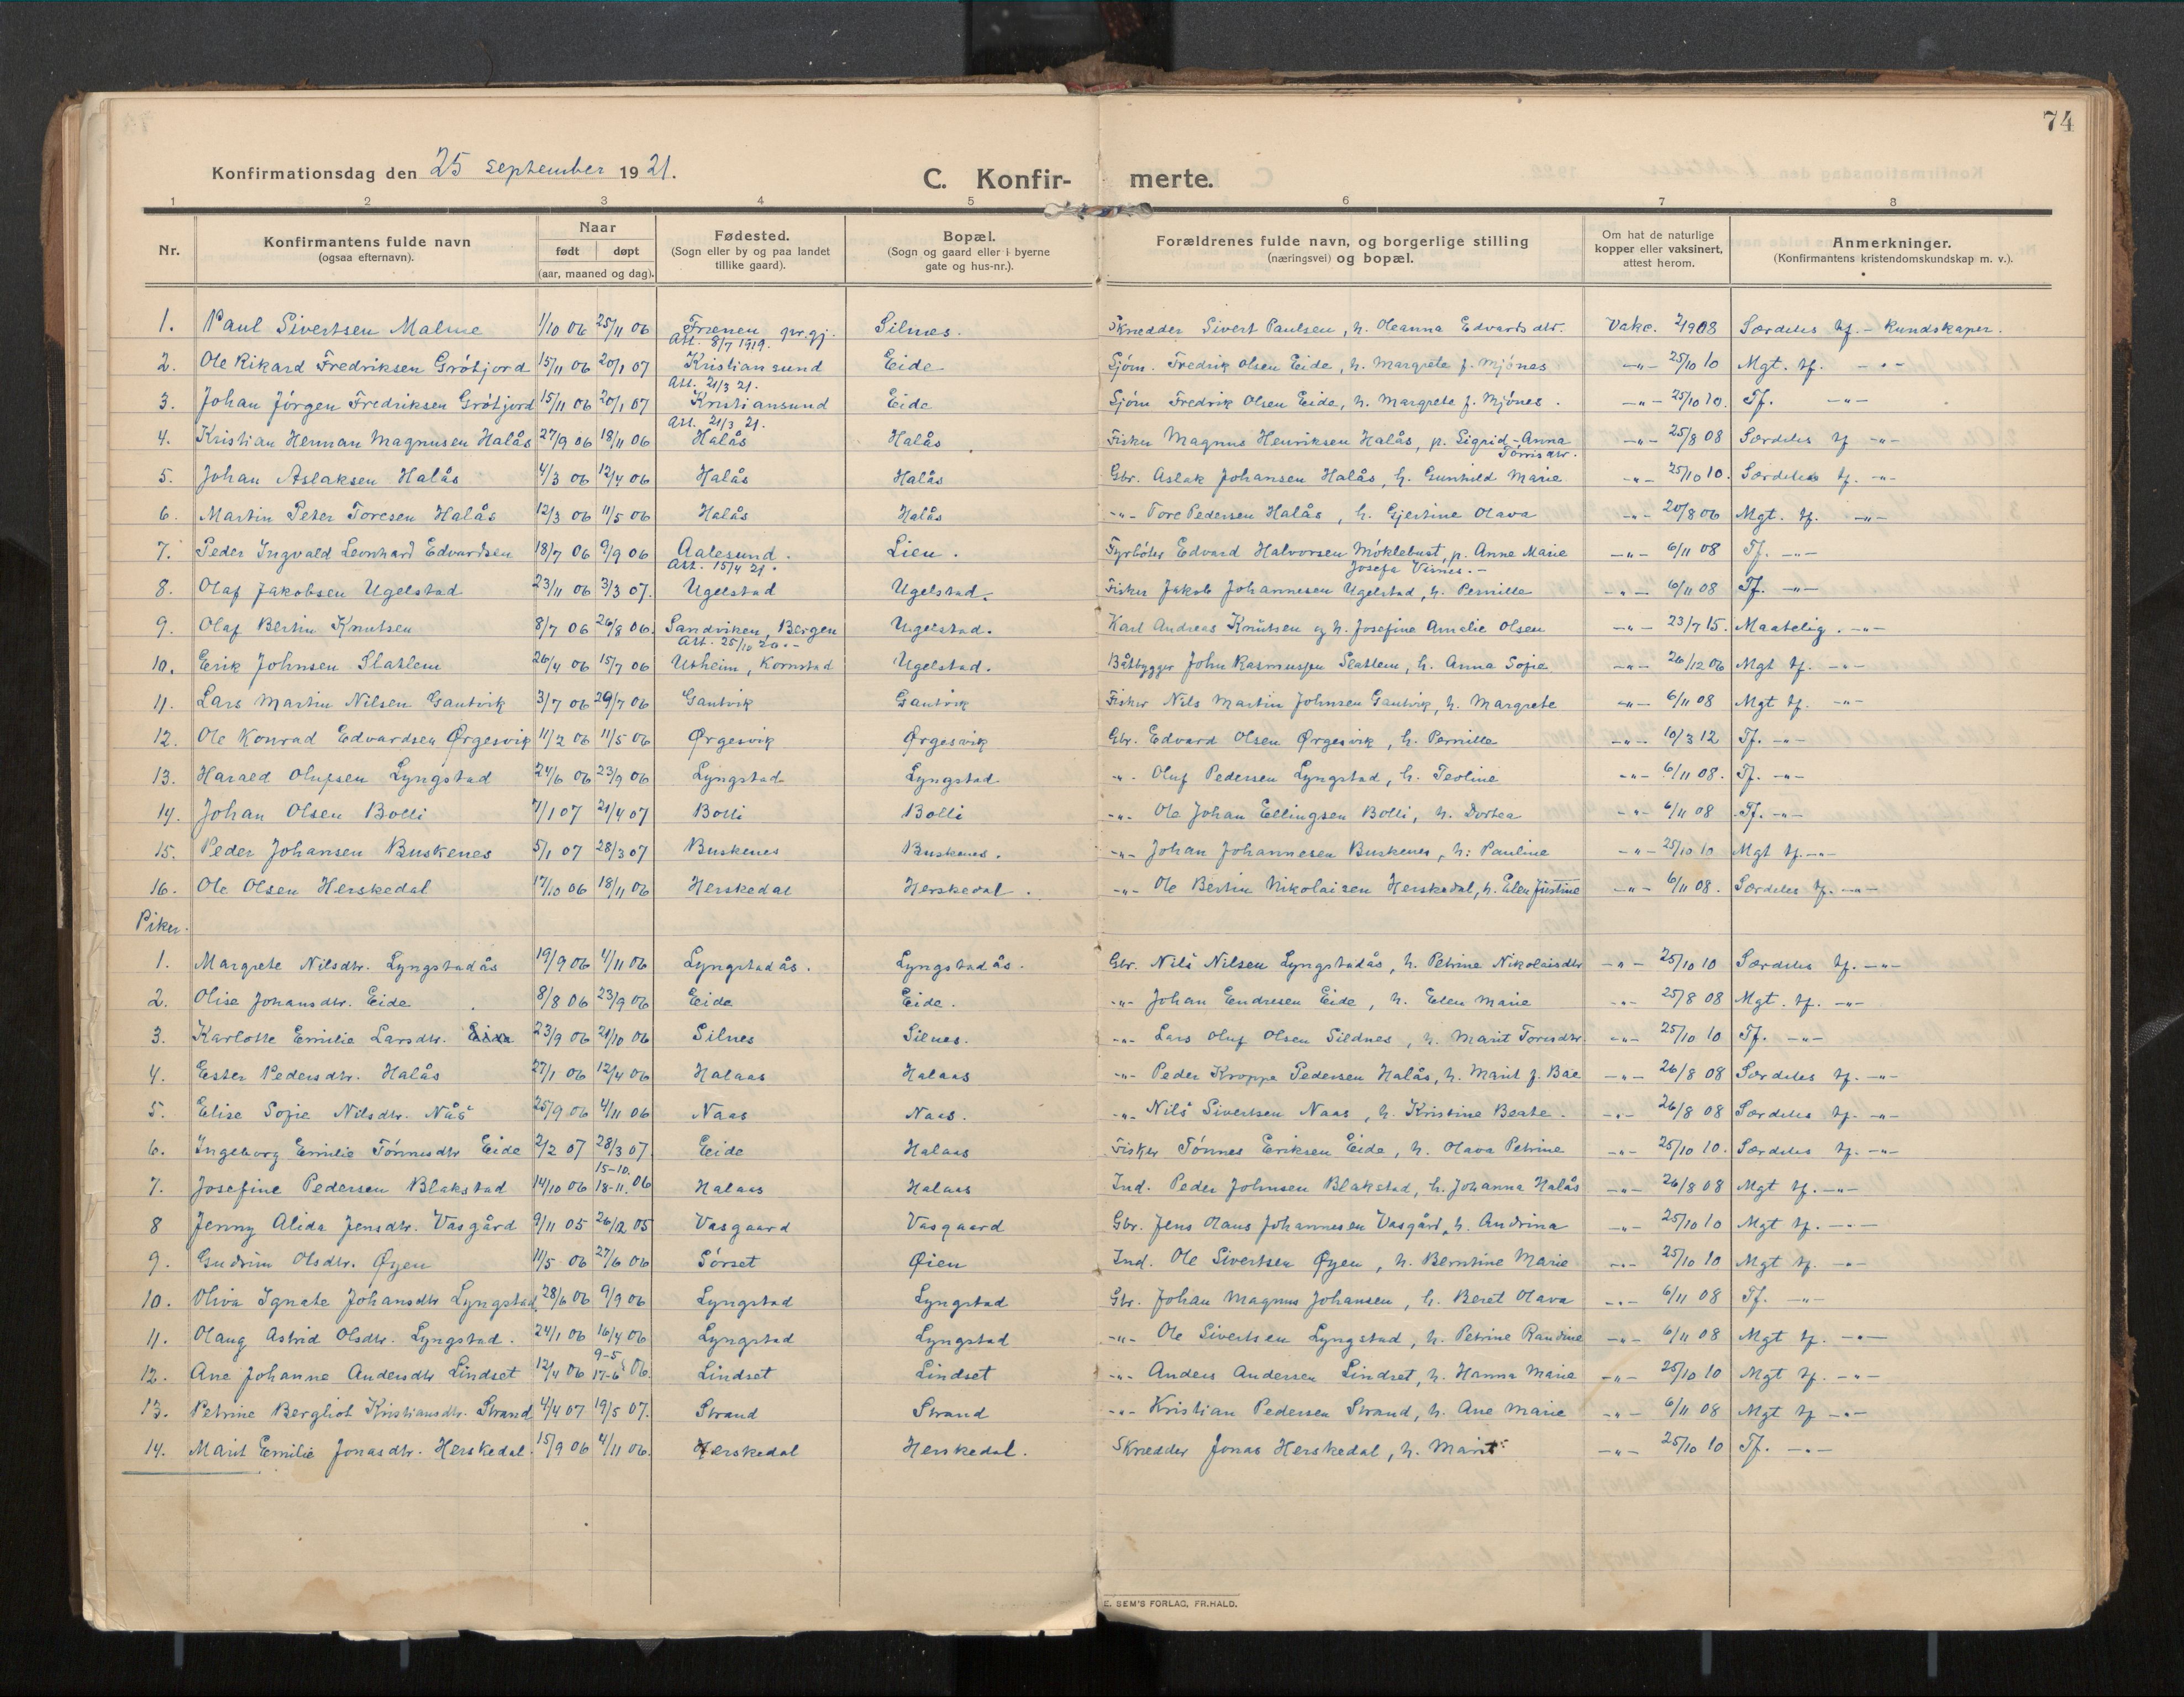 74
Konfirmationsdag den 25 september 1921.
C. Konfir- merte.
1 2 3 4 5 6 7 8
Nr. Konfirmantens fulde navn (ogsaa efternavn). Naar født døpt (aar, maaned og dag). Fødested. (Sogn eller by og paa landet tillike gaard). Bopæl. (Sogn og gaard eller i byerne gate og hus-nr.). Forældrenes fulde navn, og borgerlige stilling (næringsvei) og bopæl. Om hat de naturlige kopper eller vaksinert, attest herom. Anmerkninger. (Konfirmantens kristendomskundskap m. v.).
1. Paul Sivertsen Malme 1/10 06 25/11 06 Frænen pr.gj. Silnes. Skredder Sivert Paulsen, h. Oleanna Edvartsdtr. Vakc. 2/9 08 Særdeles tf. - Kundskaper.
Att. 8/7 1919.
2. Ole Rikard Fredriksen Grötjord 15/11 06 20/1 07 Kristiansund Eide Sjöm. Fredrik Olsen Eide, h. Margrete f. Mjönes -"- 25/10 10 Mgt. tf. -"-
Att. 21/3 21.
3. Johan Jörgen Fredriksen Grötjord 15/11 06 20/1 07 Kristiansund Eide Sjöm Fredrik Olsen Eide, h. Margrete f. Mjönes. -"- 25/10 10. Tf. -"-
Att. 21/3 21.
4. Kristian Herman Magnusen Halås 27/9 06 18/11 06 Halås Halås Fisker Magnus Henriksen Halås, p. Sigrid-Anna -"- 25/8 08 Særdeles tf -"-
Torrisdtr.
5. Johan Aslaksen Halås 4/3 06 12/4 06 Halås Halås Gbr. Aslak Johansen Halås, h. Gunhild Marie -"- 25/10 10. Særdeles tf. -"-
6. Martin Peter Toresen Halås 12/3 06 11/5 06 Halås Halås -"- Tore Pedersen Halås, h. Gjertine Olava -"- 20/8 06 Mgt. tf. -"-
7. Peder Ingvald Leonhard Edvardsen 18/7 06 9/9 06 Aalesund. Lien. Fyrböter Edvard Halvorsen Möklebust, p. Anne Marie -"- 6/11 08 Tf. -"-
Att. 15/4 21. Josefa
8. Olaf Jakobsen Ugelstad 23/11 06 3/3 07. Ugelstad Ugelstad. Fisker Jakob Johannesen Ugelstad, h. Pernille -"- 6/11 08 Tf. -"-
9. Olaf Bertin Knutsen 8/7 06 26/8 06. Sandviken, Bergen Ugelstad. Karl Andreas Knutsen og h. Josefine Amalie Olsen -"- 23/7 15. Maatelig. -"-
Att. 25/10 20.-
10. Erik Johnsen Slatlem 26/4 06 15/7 06 Utheim, Kornstad Ugelstad. Båtbygger John Rasmussen Slatlem, h. Anna Sofie -"- 26/12 06 Mgt tf. -"-
11. Lars Martin Nilsen Gautvik 3/7 06 29/7 06 Gautvik Gautvik Fisker Nils Martin Johnsen Gautvik, h. Margrete -"- 6/11 08 Mgt tf. -"-
12. Ole Konrad Edvardsen Ørgesvik 11/2 06 11/5 06 Ørgesvik Ørgesvik Gbr. Edvard Olsen Ørgesvik, h. Pernille -"- 10/3 12 Tf. -"-
13. Harald Olufsen Lyngstad 24/6 06 23/9 06 Lyngstad Lyngstad -"- Oluf Pedersen Lyngstad, h. Teoline -"- 6/11 08. Tf. -"-
14. Johan Olsen Bolli 7/1 07 21/4 07 Bolli Bolli -"- Ole Johan Ellingsen Bolli, h. Dortea -"- 6/11 08 Tf. -"-
15. Peder Johansen Buskenes 5/1 07 28/3 07 Buskenes Buskenes. -"- Johan Johannesen Buskenes, h: Pauline -"- 25/10 10 Mgt tf. -"-
16. Ole Olsen Herskedal 17/10 06 18/11 06 Herskedal Herskedal. -"- Ole Bertin Nikolaisen Herskedal, h. Elen Justine -"- 6/11 08. Særdeles tf. -"-
Piker.
1. Margrete Nilsdtr. Lyngstadås 19/9 06 4/11 06 Lyngstadås. Lyngstadås. Gbr. Nils Nilsen Lyngstadås, h. Petrine Nikolaisdtr -"- 25/10 10 Særdeles tf. -"-
2. Olise Johansdtr. Eide 8/8 06 23/9 06 Eide Eide. -"- Johan Endresen Eide, h. Elen Marie -"- 25/8 08 Mgt. tf. -"-
3. Karlotte Emilie Larsdtr. 23/9 06 21/10 06 Silnes Silnes. -"- Lars Oluf Olsen Sildnes, h. Marit Toresdtr. -"- 25/10 10 Tf. -"-
4. Ester Pedersdtr. Halås 27/1 06 12/4 06 Halaas Halaas -"- Peder Kroppa Pedersen Halås, h. Marit f. Bae -"- 26/8 08 Særdeles tf. -"-
5. Elise Sofie Nilsdtr. Nås 25/9 06 4/11 06 Naas Naas. -"- Nils Sivertsen Naas, h. Kristine Beate. -"- 26/8 08 Særdeles tf. -"-
6. Ingeborg Emilie Tönnesdtr Eide 2/2 07 28/3 07. Eide Halaas Fisker Tönnes Eriksen Eide, h. Olava Petrine -"- 25/10 10. Særdeles tf. -"-
15-10.
7. Josefine Pedersen Blakstad 14/10 06 18-11. 06 Halaas Halaas Ind. Peder Johnsen Blakstad, h. Johanna Halås -"- 26/8 08 Mgt tf. -"-
8 Jenny Alida Jensdtr. Vasgård 9/11 05 26/12 05 Vasgaard Vasgaard Gbr. Jens Olaus Johannesen Vasgård, h. Andrina -"- 25/10 10 Mgt tf. -"-
9. Gudrun Olsdtr. Øyen 11/5 06 27/6 06 Sörset Øien Ind. Ole Sivertsen Øyen, h. Berntine Marie -"- 25/10 10 Mgt tf. -"-
10. Oliva Ignate Johansdtr Lyngstad 28/6 06 9/9 06 Lyngstad Lyngstad Gbr. Johan Magnus Johansen, h. Beret Olava -"- 6/11 08 Tf. -"-
11. Olaug Astrid Olsdtr. Lyngstad. 24/1 06 16/4 06 Lyngstad Lyngstad -"- Ole Sivertsen Lyngstad, h. Petrine Randine -"- 6/11 08 Mgt tf. -"-
9-5
12. Ane Johanne Andersdtr Lindset 12/4 06 17-6 06. Lindset Lindset -"- Anders Andersen Lindset, h. Hanna Marie -"- 25/10 10 Mgt tf. -"-
13. Petrine Bergliot Kristiansdtr. Strand 4/4 07 19/5 07. Strand Strand -"- Kristian Pedersen Strand, h. Ane Marie -"- 6/11 08 Mgt tf -"-
14. Marit Emilie Jonasdtr. Herskedal. 15/9 06 4/11 06. Herskedal Herskedal. Skredder Jonas Herskedal, h. Marit -"- 25/10 10 Tf. -"-
E. SEM'S FORLAG, FR.HALD.